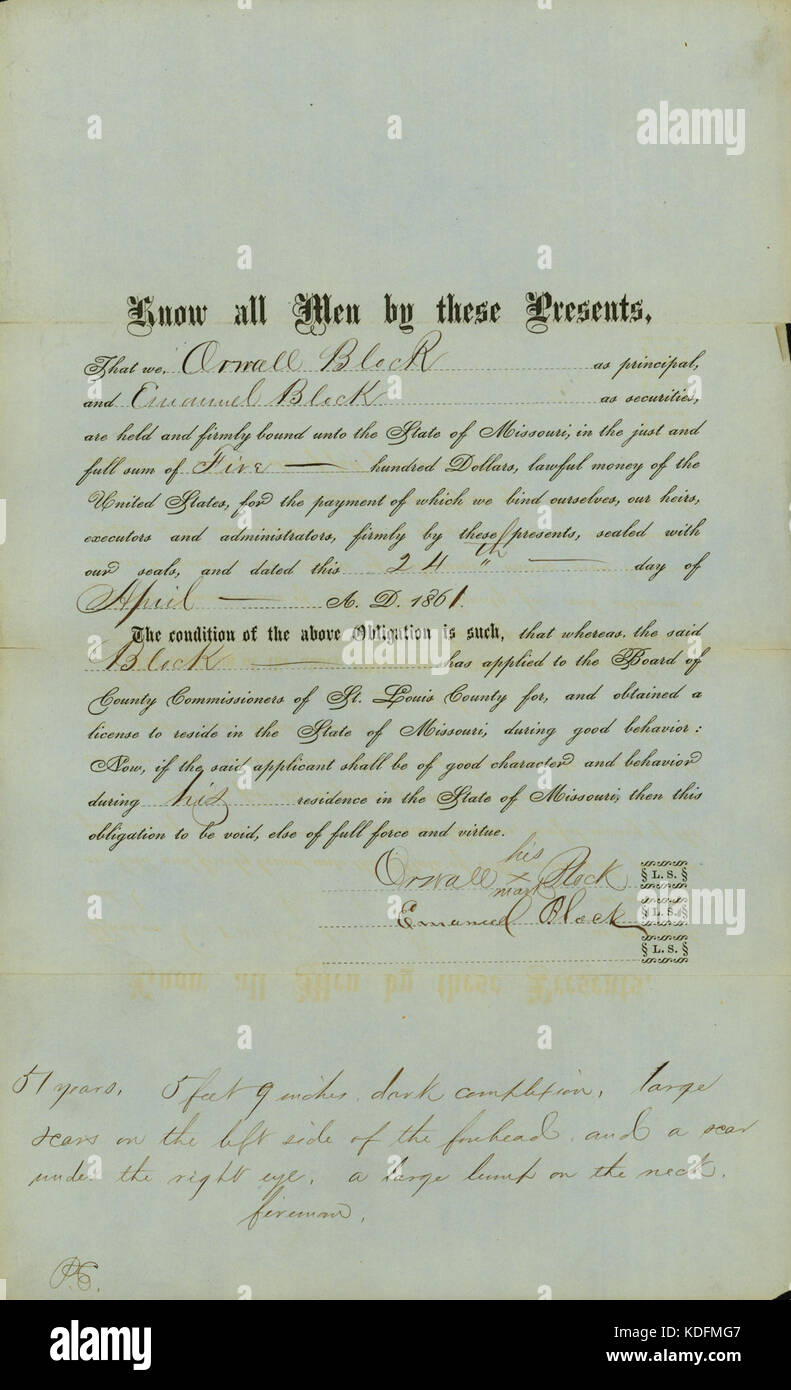 Know all Men by these Presents,
That we, Orwall Block as principal,
and Emanuel Block as securities,
are held and firmly bound unto the State of Missouri, in the just and
full sum of Five hundred Dollars, lawful money of the
United States, for the payment of which we bind ourselves, our heirs,
executors and administrators, firmly by these presents, sealed with
our seals, and dated this 24th day of
April A. D. 1861.
The condition of the above Obligation is such, that whereas, the said
Block has applied to the Board of
County Commissioners of St. Louis County for, and obtained a
license to reside in the State of Missouri, during good behavior:
Now, if the said applicant shall be of good character and behavior
during his residence in the State of Missouri, then this
obligation to be void, else of full force and virtue.
his
Orwall x Block L. S.
mark
Emanuel Block L. S.
L. S.
Know all Men by these Presents,
51 years, 5 feet 9 inches, dark complexion, large
scars on the left side of the forehead, and a scar
under the right eye, a large lump on the neck.
fireman.
alamy
Image ID: KDFMG7
www.alamy.com